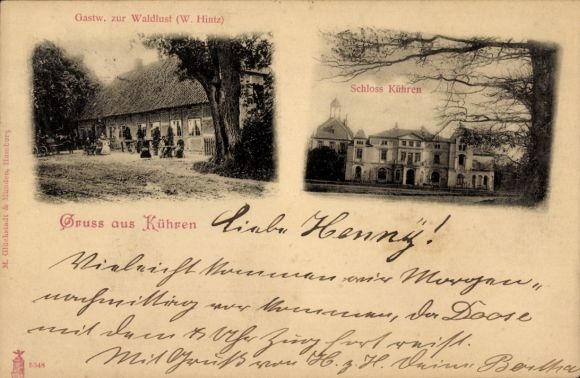 Gastw. zur Waldlust (W. Hintz)
Schloss Kühren
Gruss aus Kühren
Liebe Henny!
Vieleicht kommen wir Morgen„
nachmittag vor kommen, da Doose
mit dem Uhr Zug fort reist.
Mit Gruß von H. z H. Deine Bertha
M. Glückstadt & Münden, Hamburg
5348